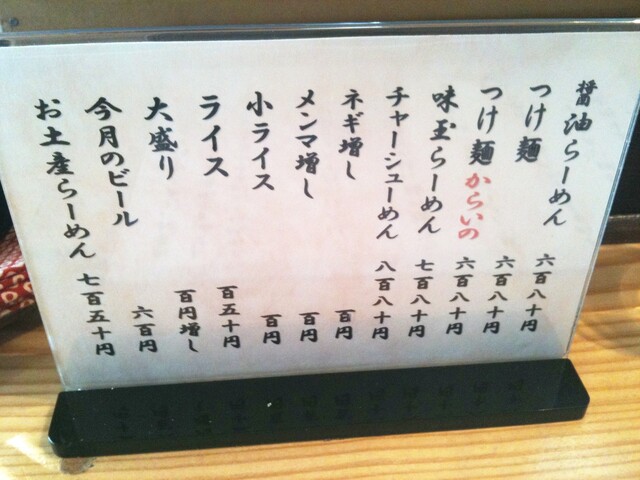 醤油らーめん 六百八十円
つけ麺 六百八十円
つけ麺 からいの 六百八十円
味玉らーめん 七百八十円
チャーシューめん 八百八十円
ネギ増し 百円
メンマ増し 百円
小ライス 百円
ライス 百五十円
大盛り 百円増し
今月のビール 六百円
お土産らーめん 七百五十円